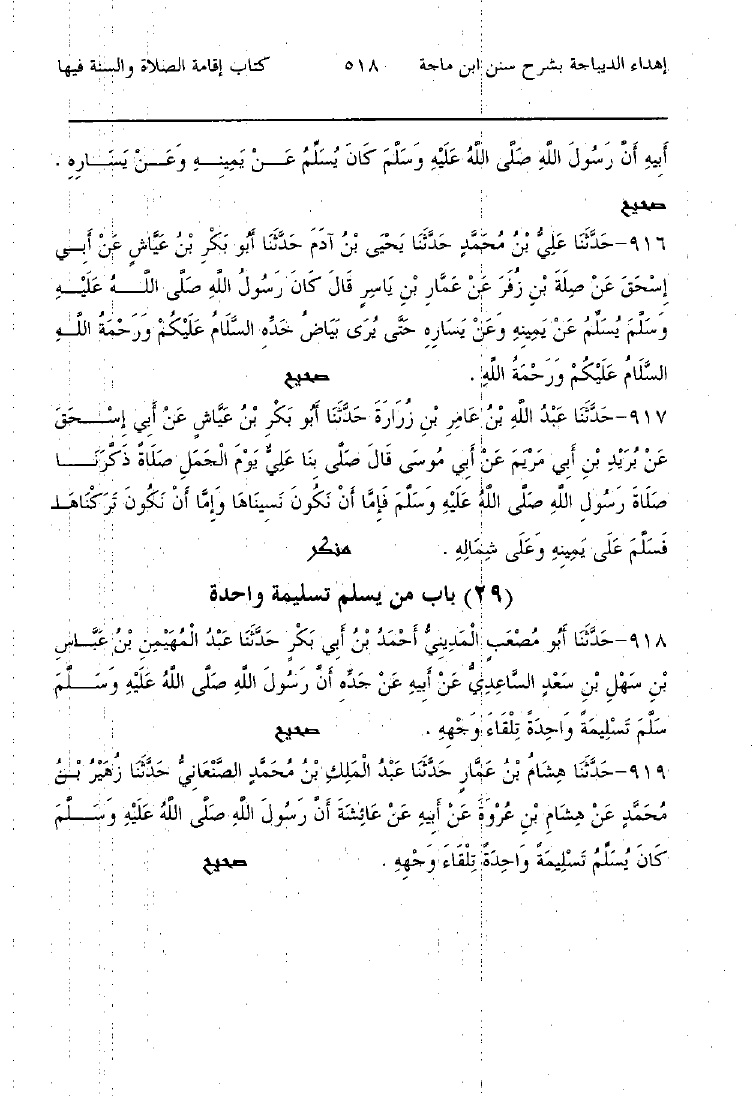 إهداء الديباجة بشرح سنن ابن ماجة ٥١٨ كتاب إقامة الصلاة والسنة فيها
أَبِيهِ أَنَّ رَسُولَ اللَّهِ صَلَّى اللَّهُ عَلَيْهِ وَسَلَّمَ كَانَ يُسَلِّمُ عَـنْ يَمِينِـهِ وَعَـنْ يَسَارِهِ .
صحيح
٩١٦-حَدَّثَنَا عَلِيُّ بْنُ مُحَمَّدٍ حَدَّثَنَا يَحْيَى بْنُ آدَمَ حَدَّثَنَا أَبُو بَكْرِ بْنُ عَيَّاشٍ عَنْ أَبِـي
إِسْحَقَ عَنْ صِلَةَ بْنِ زُفَرَ عَنْ عَمَّارِ بْنِ يَاسِرٍ قَالَ كَانَ رَسُولُ اللَّهِ صَلَّى اللَّـهُ عَلَيْـهِ
وَسَلَّمَ يُسَلِّمُ عَنْ يَمِينِهِ وَعَنْ يَسَارِهِ حَتَّى يُرَى بَيَاضُ خَدِّهِ السَّلَامُ عَلَيْكُمْ وَرَحْمَةُ اللَّـهِ
السَّلَامُ عَلَيْكُمْ وَرَحْمَةُ اللَّهِ . صحيح
٩١٧-حَدَّثَنَا عَبْدُ اللَّهِ بْنُ عَامِرِ بْنِ زُرَارَةَ حَدَّثَنَا أَبُو بَكْرِ بْنُ عَيَّاشٍ عَنْ أَبِي إِسْـحَقَ
عَنْ بُرَيْدِ بْنِ أَبِي مَرْيَمَ عَنْ أَبِي مُوسَى قَالَ صَلَّى بِنَا عَلِيٌّ يَوْمَ الْجَمَلِ صَلَاةً ذَكَّرَنَـا
صَلَاةَ رَسُولِ اللَّهِ صَلَّى اللَّهُ عَلَيْهِ وَسَلَّمَ فَإِمَّا أَنْ نَكُونَ نَسِينَاهَا وَإِمَّا أَنْ نَكُونَ تَرَكْنَاهَـا
فَسَلَّمَ عَلَى يَمِينِهِ وَعَلَى شِمَالِهِ . منكر
(٢٩) باب من يسلم تسليمة واحدة
٩١٨-حَدَّثَنَا أَبُو مُصْعَبٍ الْمَدِينِيُّ أَحْمَدُ بْنُ أَبِي بَكْرٍ حَدَّثَنَا عَبْدُ الْمُهَيْمِنِ بْنُ عَبَّـاسِ
بْنِ سَهْلِ بْنِ سَعْدٍ السَّاعِدِيُّ عَنْ أَبِيهِ عَنْ جَدِّهِ أَنَّ رَسُولَ اللَّهِ صَلَّى اللَّهُ عَلَيْهِ وَسَـلَّمَ
سَلَّمَ تَسْلِيمَةً وَاحِدَةً تِلْقَاءَ وَجْهِهِ . صحيح
٩١٩-حَدَّثَنَا هِشَامُ بْنُ عَمَّارٍ حَدَّثَنَا عَبْدُ الْمَلِكِ بْنُ مُحَمَّدٍ الصَّنْعَانِيُّ حَدَّثَنَا زُهَيْرُ بْـنُ
مُحَمَّدٍ عَنْ هِشَامِ بْنِ عُرْوَةَ عَنْ أَبِيهِ عَنْ عَائِشَةَ أَنَّ رَسُولَ اللَّهِ صَلَّى اللَّهُ عَلَيْهِ وَسَـلَّمَ
كَانَ يُسَلِّمُ تَسْلِيمَةً وَاحِدَةً تِلْقَاءَ وَجْهِهِ . صحيح